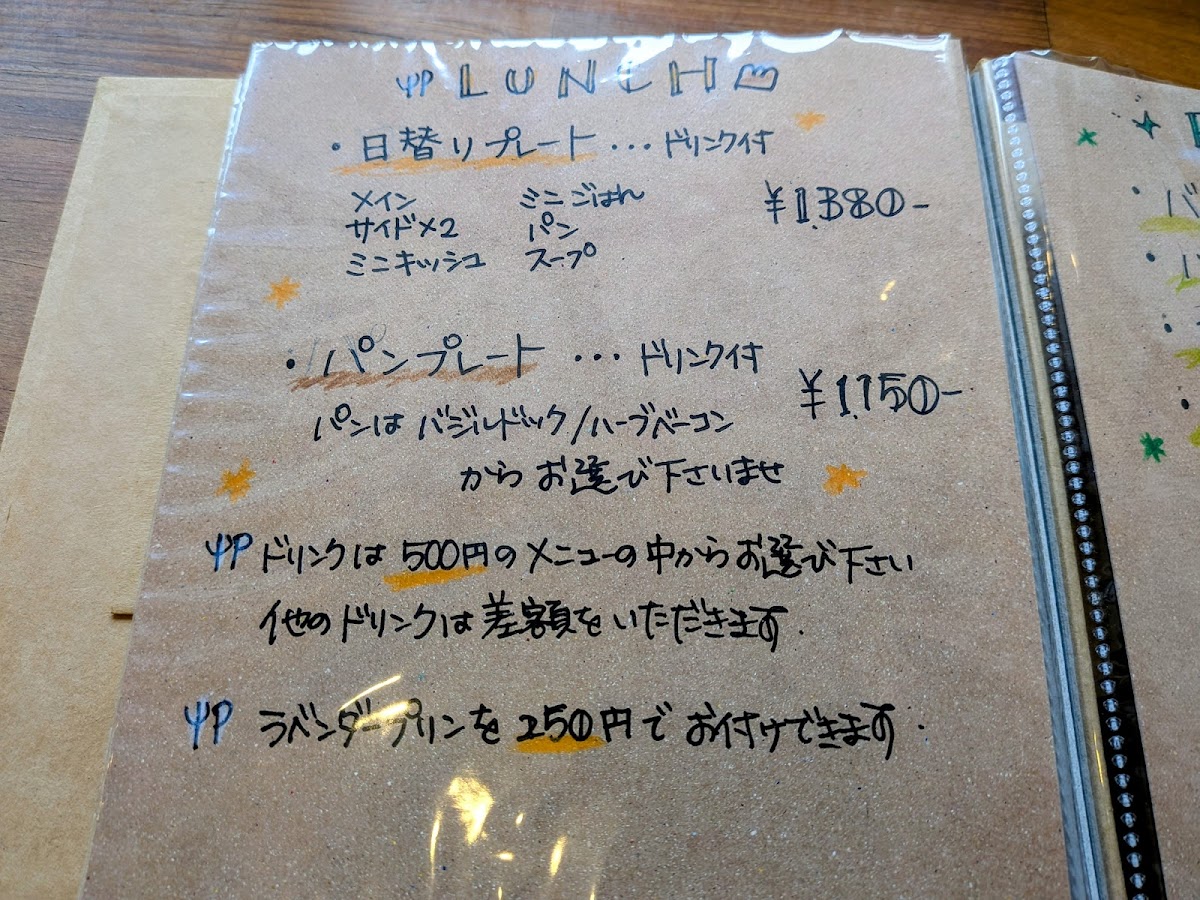 LUNCH
・日替りプレート ・・・ドリンク付
メイン ミニごはん ¥1.380-
サイド×2 パン
ミニキッシュ スープ
・パンプレート ・・・ドリンク付
¥1.150-
パンは バジルドック/ハーブベーコン
からお選び下さいませ
ドリンクは500円のメニューの中からお選び下さい
他のドリンクは差額をいただきます.
ラベンダープリンを250円でお付けできます.